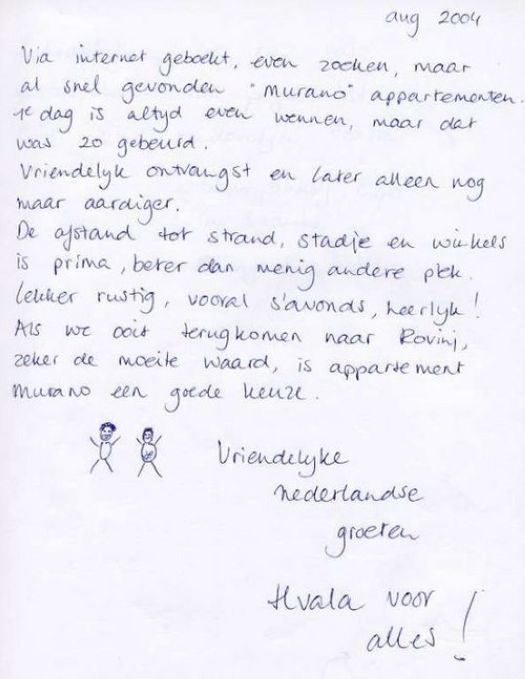 aug 2004
Via internet geboekt, even zoeken, maar
al snel gevonden "Murano" appartementen.
1e dag is altyd even wennen, maar dat
was zo gebeurd.
Vriendelyk ontvangst en later alleen nog
maar aardiger.
De afstand tot strand, stadje en winkels
is prima, beter dan menig andere plek.
lekker rustig, vooral s'avonds, heerlyk!
Als we ooit terugkomen naar Rovinj,
zeker de moeite waard, is appartement
Murano een goede keuze.
Vriendelyke
nederlandse
groeten
Hvala voor
alles!